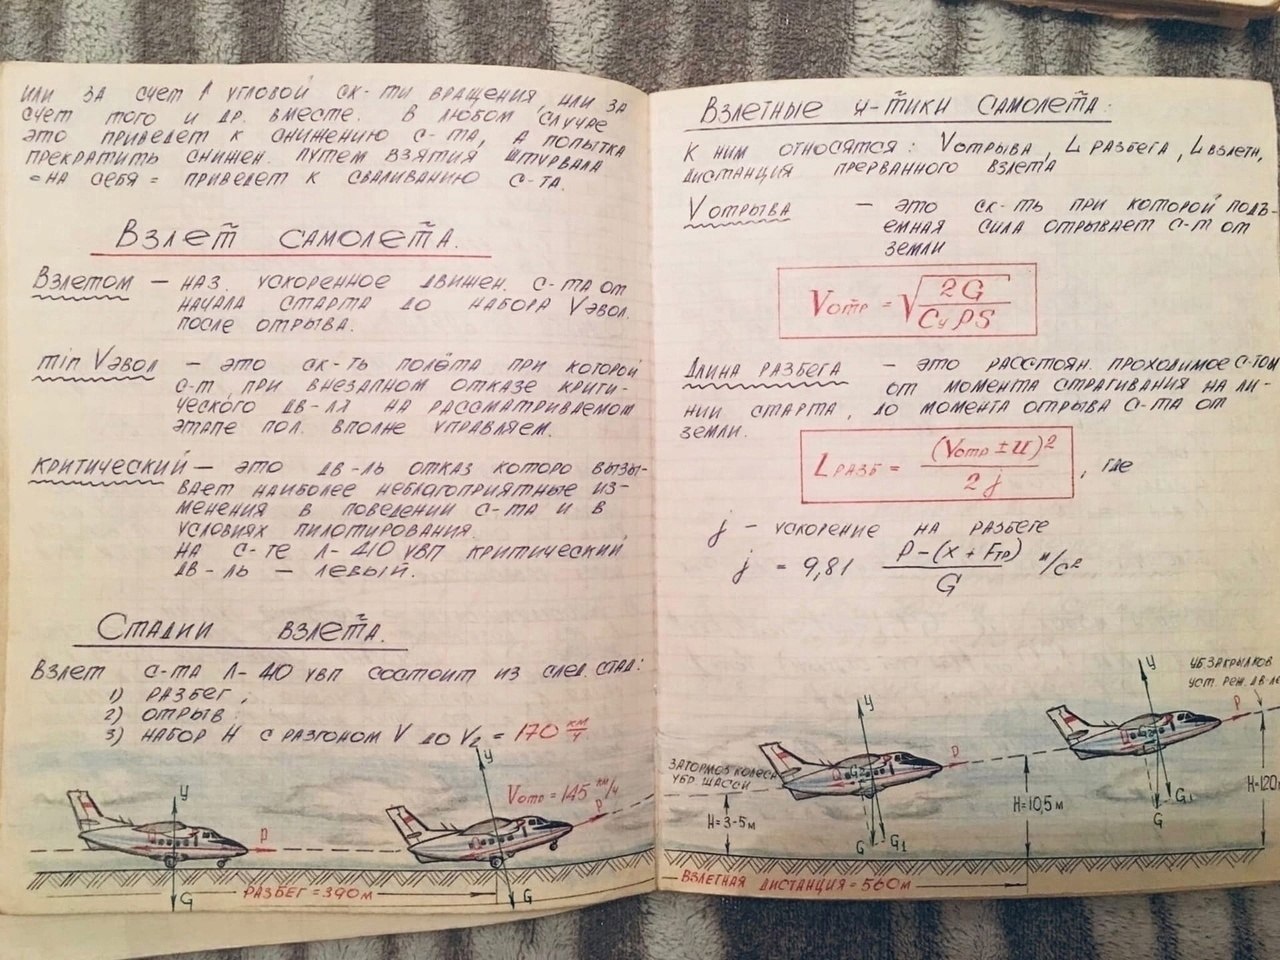 или за счет ↑ угловой ск-ти вращения, или за
счет того и др. вместе. В любом случае
это приведет к снижению с-та, а попытка
прекратить снижен. путем взятия штурвала
"на себя" приведет к сваливанию с-та.
Взлет самолета.
Взлетом — наз. ускоренное движен. с-та от
начала старта до набора Vэвол.
после отрыва.
min Vэвол — это ск-ть полёта при которой
с-т при внезапном отказе крити-
ческого дв-ля на рассматриваемом
этапе пол. вполне управляем.
критический — это дв-ль отказ которо вызы-
вает наиболее неблагоприятные из-
менения в поведении с-та и в
условиях пилотирования.
на с-те Л-410 УВП критический
дв-ль — левый.
Стадии взлета.
Взлет с-та Л-410 УВП состоит из след. стад:
1) разбег;
2) отрыв;
3) набор H с разгоном V до V₂ = 170 км/ч
Vотр = 145 км/ч
У
У
P
P
G
G
Разбег = 390 м
Взлетные х-тики самолета.
К ним относятся: Vотрыва, L разбега, L взлетн,
дистанция прерванного взлета
Vотрыва — это ск-ть при которой подъ-
емная сила отрывает с-т от
земли
Vотр = √(2G / CyρS)
Длина разбега — это расстоян. проходимое с-том
от момента страгивания на ли-
нии старта, до момента отрыва с-та от
земли.
Lразб = (Vотр ± U)² / 2j, где
j — ускорение на разбеге
j = 9,81 (P − (X + Fтр)) / G м/с²
У
уб. закрылков
уст. реж. дв-ле
P
У
P
затормоз колеса
убр. шасси
H=3-5м
H=10,5м
H=120
G
G₁
G
G₁
Взлетная дистанция = 560м